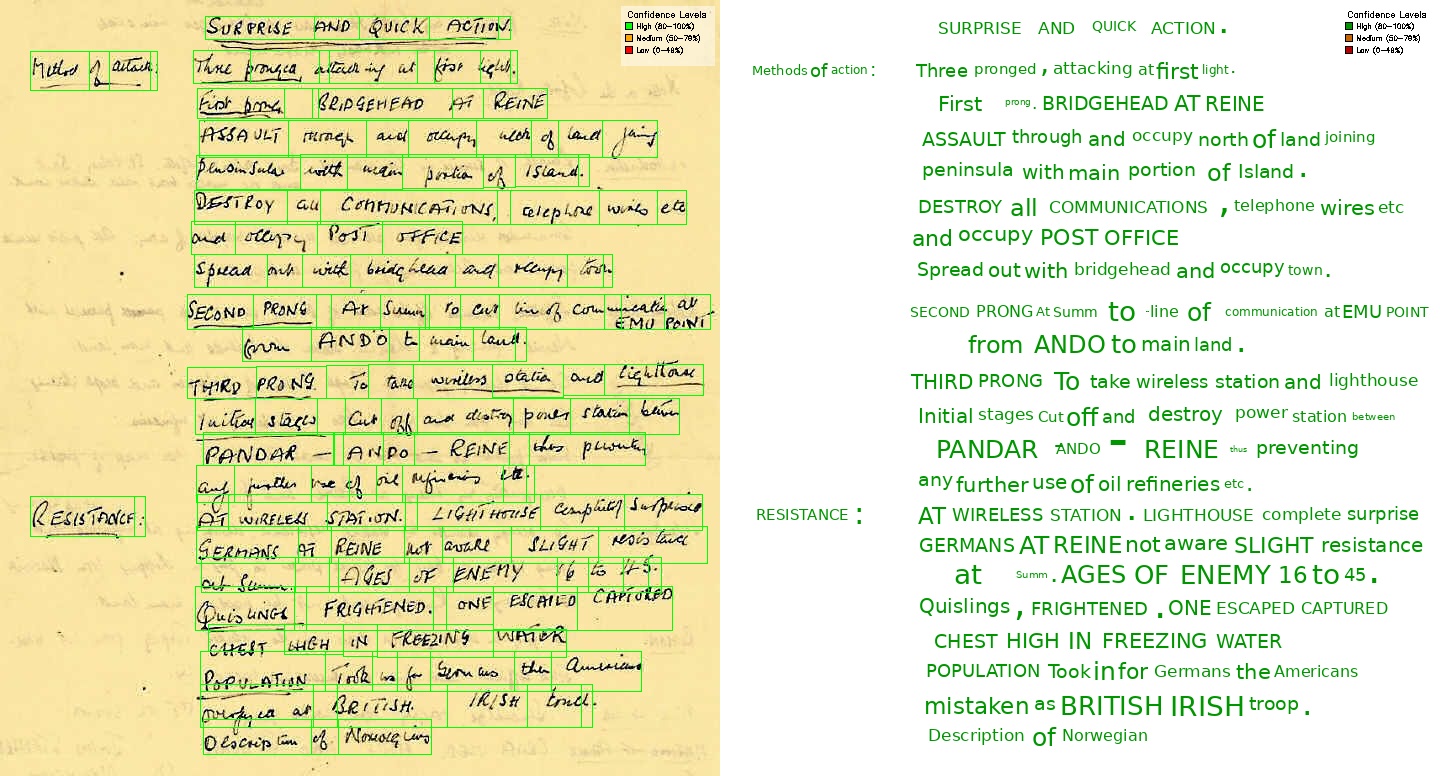 SURPRISE AND QUICK ACTION.
Method of attack:
Three pronged attacking at first light.
First prong BRIDGEHEAD AT REINE
ASSAULT through and occupy neck of land joining
peninsular with main portion of Island.
DESTROY all COMMUNICATIONS, telephone wires etc
and occupy POST OFFICE
Spread out with bridghead and occupy town
SECOND PRONG At Summ to cut line of communication at
EMU POINT.
from ANDO to main land.
THIRD PRONG. To take wireless station and lighthouse
Initial stages Cut off and destroy power station between
PANDAR — ANDO — REINE thus preventing
any further use of oil refineries etc.
RESISTANCE:
AT WIRELESS STATION. LIGHTHOUSE complete surprise
GERMANS AT REINE not aware SLIGHT resistance
at Summ. AGES OF ENEMY 16 to 45.
QUISLINGS FRIGHTENED. ONE ESCAPED CAPTURED
CHEST HIGH IN FREEZING WATER
POPULATION Took us for Germans then Americans
at BRITISH. IRISH
Description of Norwegians
Confidence Levels
High (80-100%)
Medium (50-79%)
Low (0-49%)
SURPRISE AND QUICK ACTION .
Methods of action :
Three pronged , attacking at first light .
First prong . BRIDGEHEAD AT REINE
ASSAULT through and occupy north of land joining
peninsula with main portion of Island .
DESTROY all COMMUNICATIONS , telephone wires etc
and occupy POST OFFICE
Spread out with bridgehead and occupy town .
SECOND PRONG At Summ to -line of communication at EMU POINT
from ANDO to main land .
THIRD PRONG To take wireless station and lighthouse
Initial stages Cut off and destroy power station between
PANDAR ANDO - REINE thus preventing
any further use of oil refineries etc .
RESISTANCE :
AT WIRELESS STATION . LIGHTHOUSE complete surprise
GERMANS AT REINE not aware SLIGHT resistance
at Summ . AGES OF ENEMY 16 to 45 .
Quislings , FRIGHTENED . ONE ESCAPED CAPTURED
CHEST HIGH IN FREEZING WATER
POPULATION Took in for Germans the Americans
mistaken as BRITISH IRISH troop .
Description of Norwegian
Confidence Levels
High (80-100%)
Medium (50-79%)
Low (0-49%)